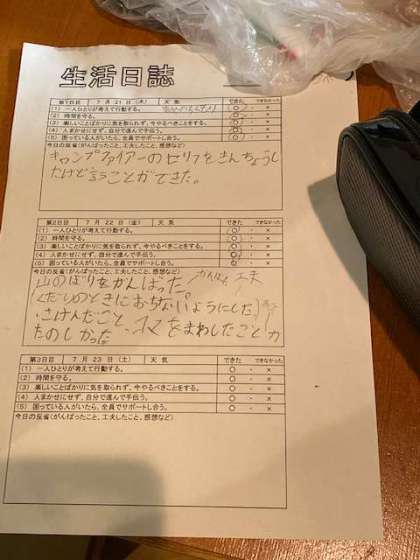 生活日誌
第1日目 7月21日(木) 天気 できた できなかった
(1) 一人ひとりが考えて行動する。 ○ ・ ×
(2) 時間を守る。 ○ ・ ×
(3) 楽しいことばかりに気を取られず、今やるべきことをする。 ○ ・ ×
(4) 人まかせにせず、自分で進んで手伝う。 ○ ・ ×
(5) 困っている人がいたら、全員でサポートし合う。 ○ ・ ×
今日の反省(がんばったこと、工夫したこと、感想など)
キャンプファイアーのセリフをきんちょうし
たけど言うことができた。
第2日目 7月22日(金) 天気 できた できなかった
(1) 一人ひとりが考えて行動する。 ○ ・ ×
(2) 時間を守る。 ○ ・ ×
(3) 楽しいことばかりに気を取られず、今やるべきことをする。 ○ ・ ×
(4) 人まかせにせず、自分で進んで手伝う。 ○ ・ ×
(5) 困っている人がいたら、全員でサポートし合う。 ○ ・ ×
今日の反省(がんばったこと、工夫したこと、感想など)
山のぼりをがんばった 工夫
くだりのときにおちないようにした
さけんだこと、コマをまわしたことが
たのしかった
第3日目 7月23日(土) 天気 できた できなかった
(1) 一人ひとりが考えて行動する。 ○ ・ ×
(2) 時間を守る。 ○ ・ ×
(3) 楽しいことばかりに気を取られず、今やるべきことをする。 ○ ・ ×
(4) 人まかせにせず、自分で進んで手伝う。 ○ ・ ×
(5) 困っている人がいたら、全員でサポートし合う。 ○ ・ ×
今日の反省(がんばったこと、工夫したこと、感想など)